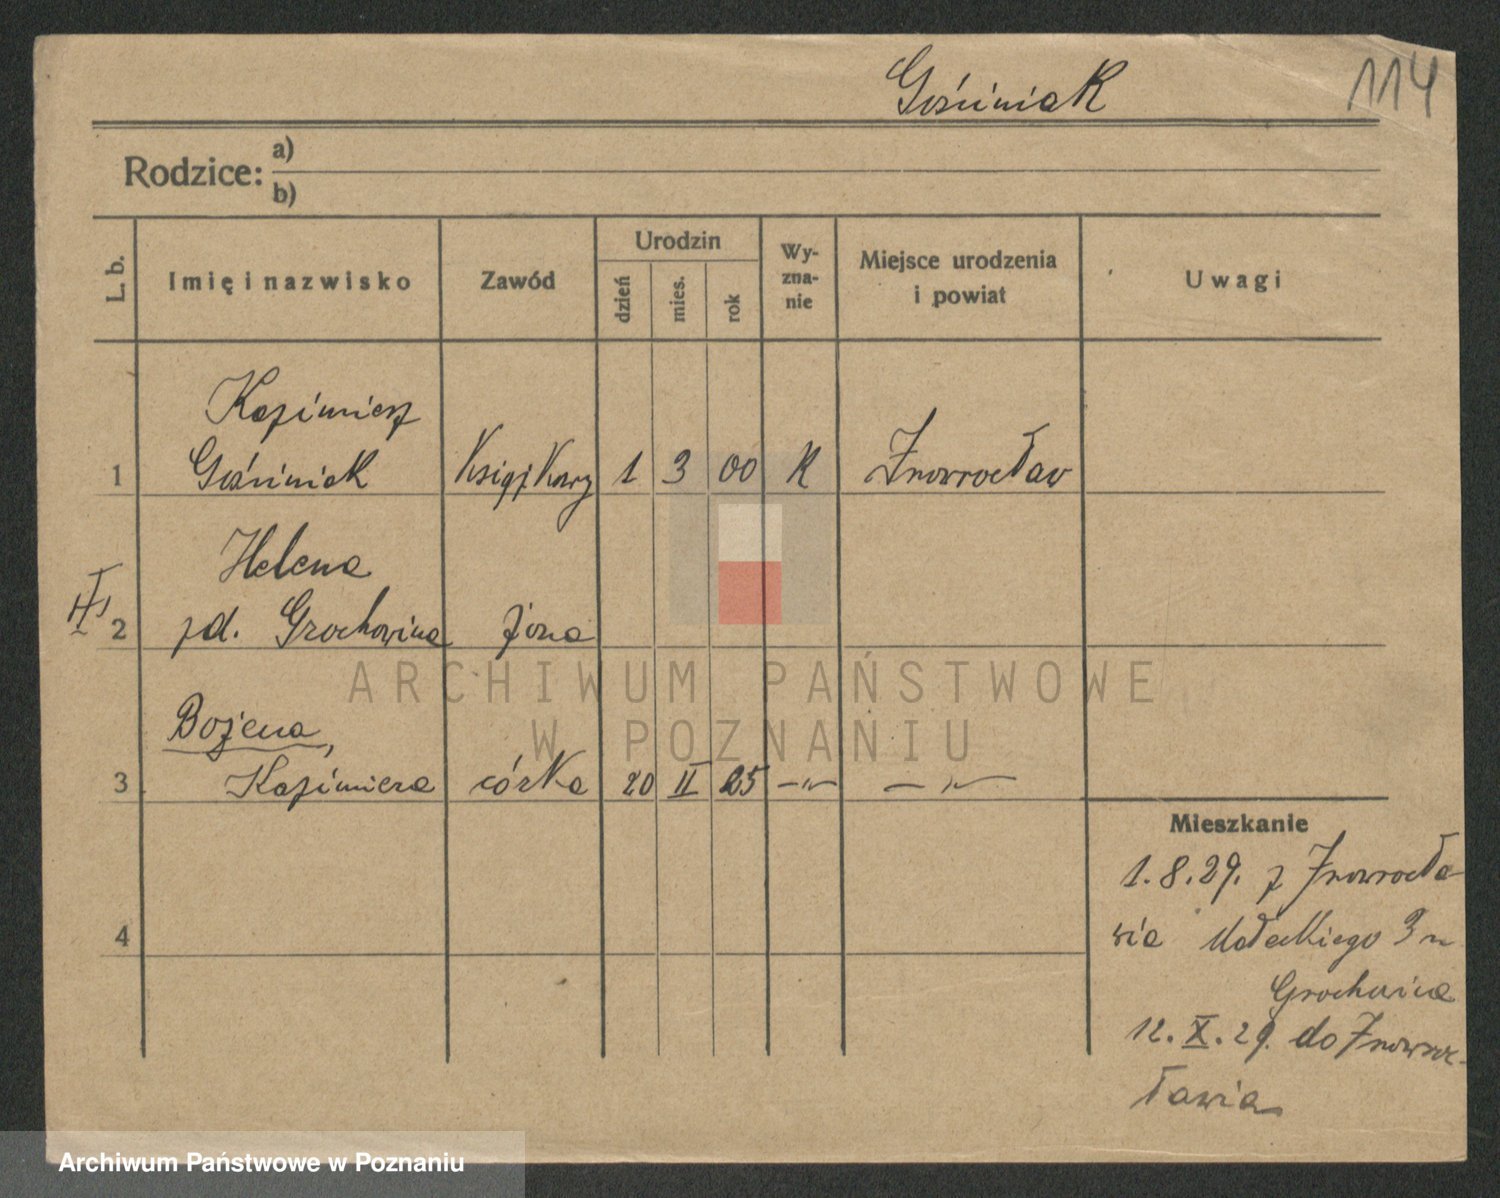 Gośiniak
114
Rodzice:
a)
b)
L. b.
Imię i nazwisko
Zawód
Urodzin
dzień
mies.
rok
Wy-
zna-
nie
Miejsce urodzenia
i powiat
Uwagi
Kazimierz
1 Gośiniak Książkowy 1 3 00 K Inowrocław
Helena
2 zd. Grochowina żona
Bożena,
3 Kazimiera córka 20 II 25 —"— —"—
4
Mieszkanie
1.8.29. z Inowrocła
wia Małeckiego 3 u
Grochowina
12.X.29. do Inowroc-
ławia
ARCHIWUM PAŃSTWOWE
W POZNANIU
Archiwum Państwowe w Poznaniu